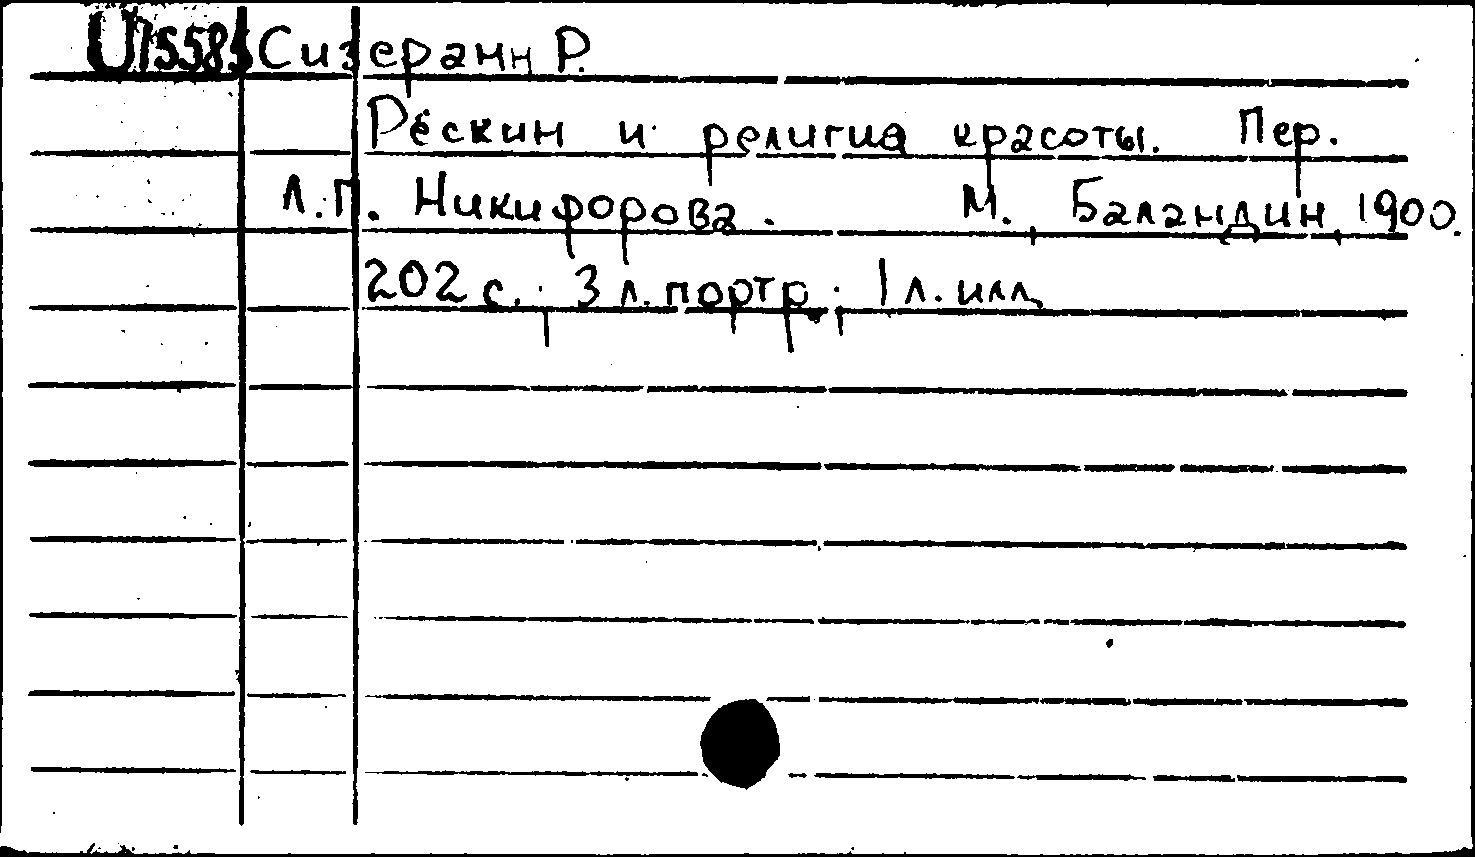 U15585 Сизеранн Р.
Рёскин и религия красоты. Пер.
Л.П. Никифорова. М., Баландин, 1900.
202 с.; 3 л. портр.; 1 л. илл.